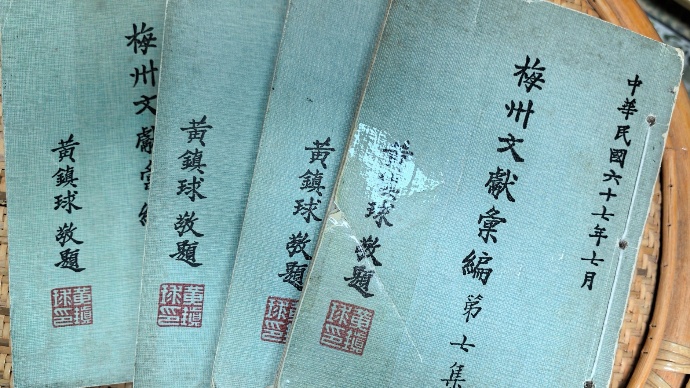 中華民國六十七年七月
梅州文獻彙編第七集
黃鎮球敬題
黃鎮球印
黃鎮球敬題
黃鎮球印
黃鎮球敬題
黃鎮球印
梅州文獻彙編
黃鎮球敬題
黃鎮球印